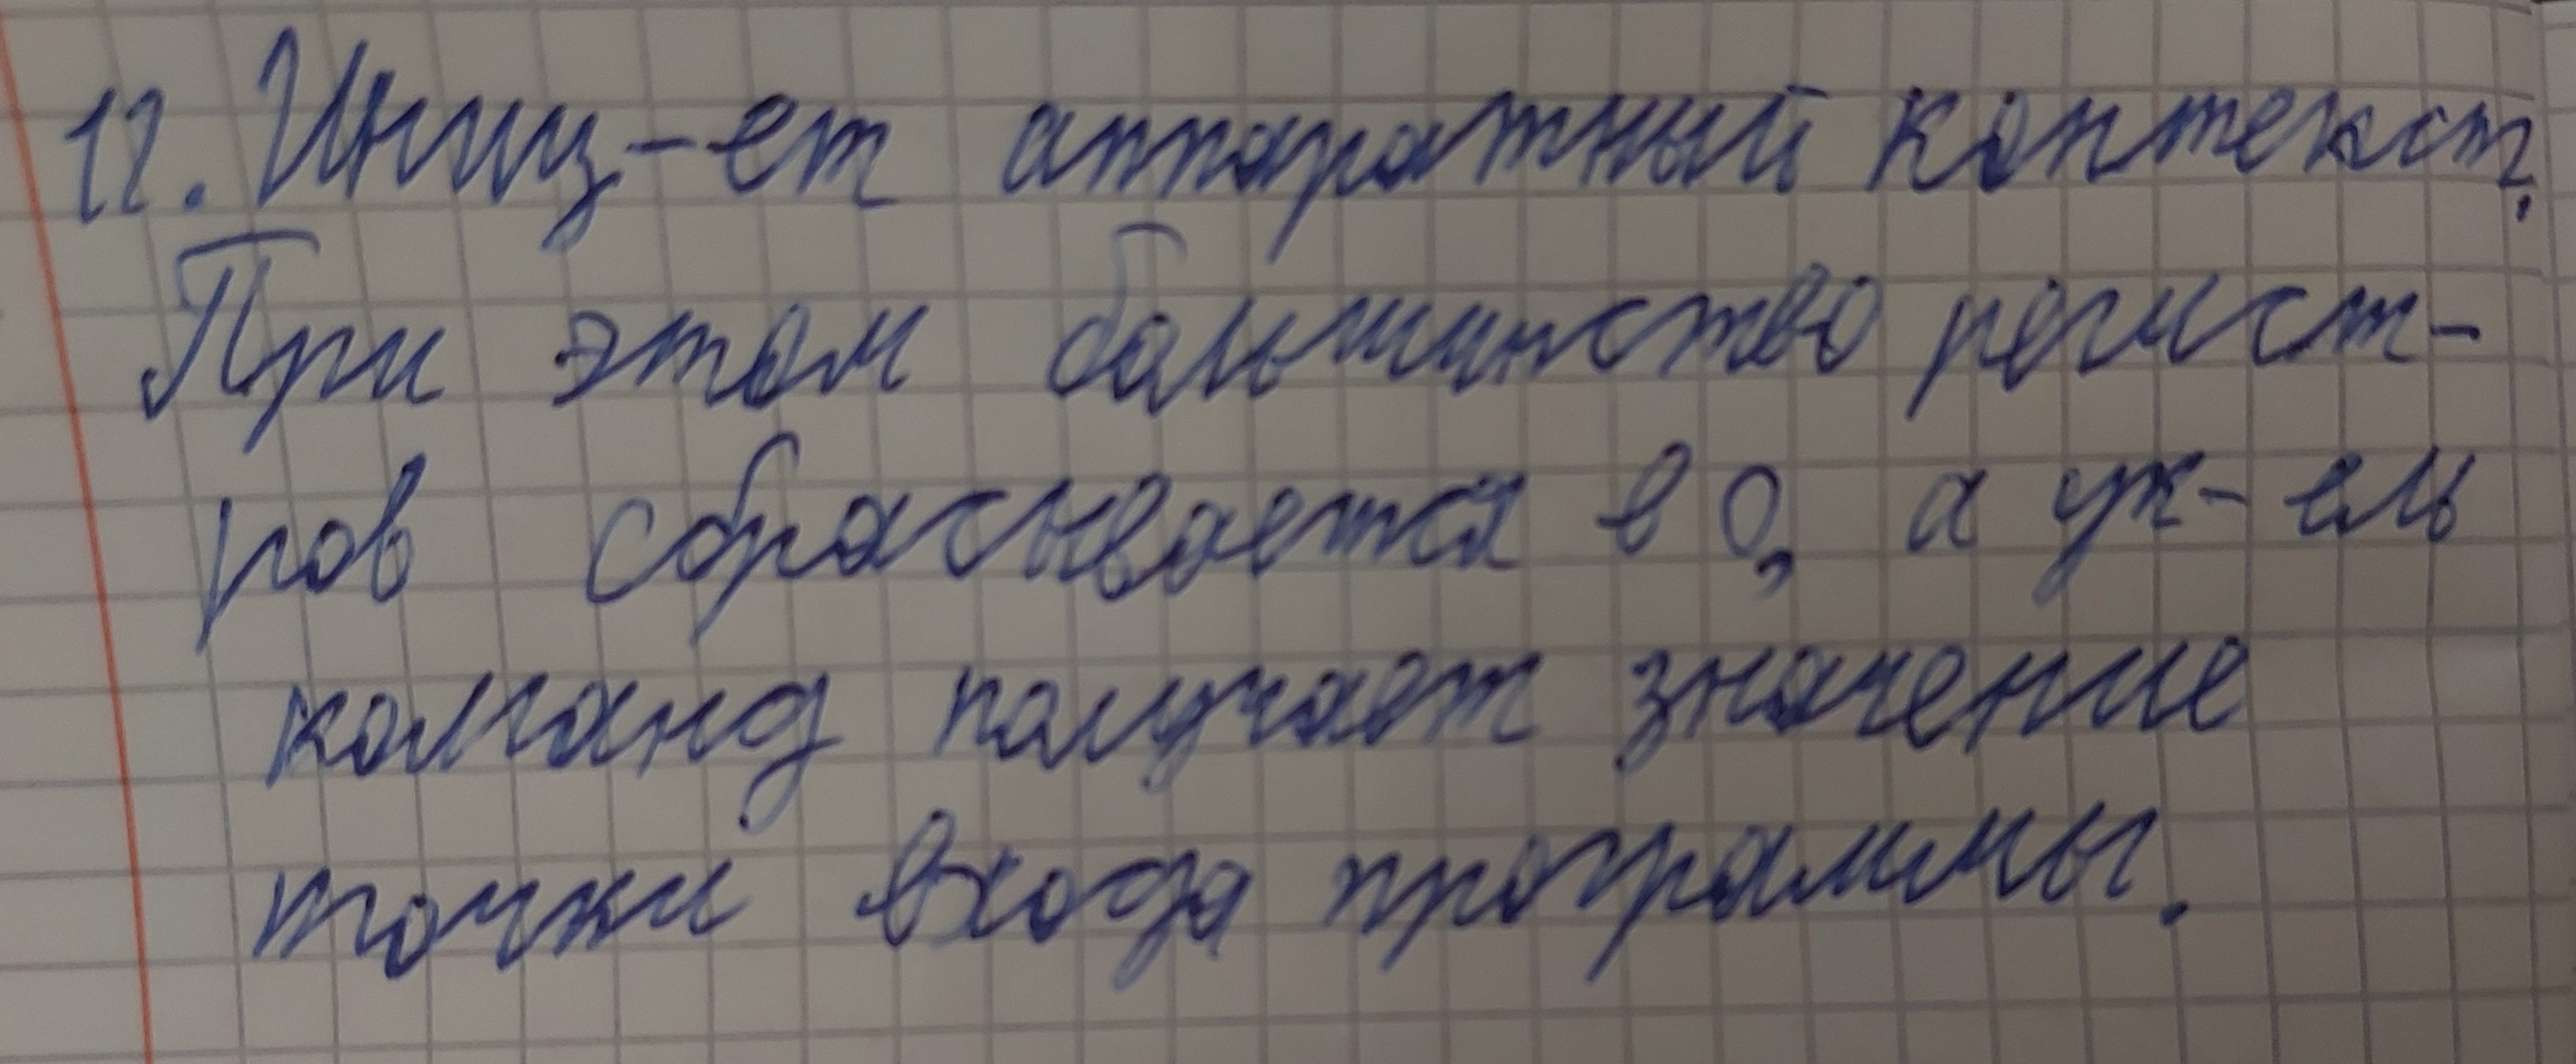 12. Иниц-ет аппаратный контекст.
При этом большинство регист-
ров сбрасывается в 0, а ук-ель
команд получает значение
точки входа программы.